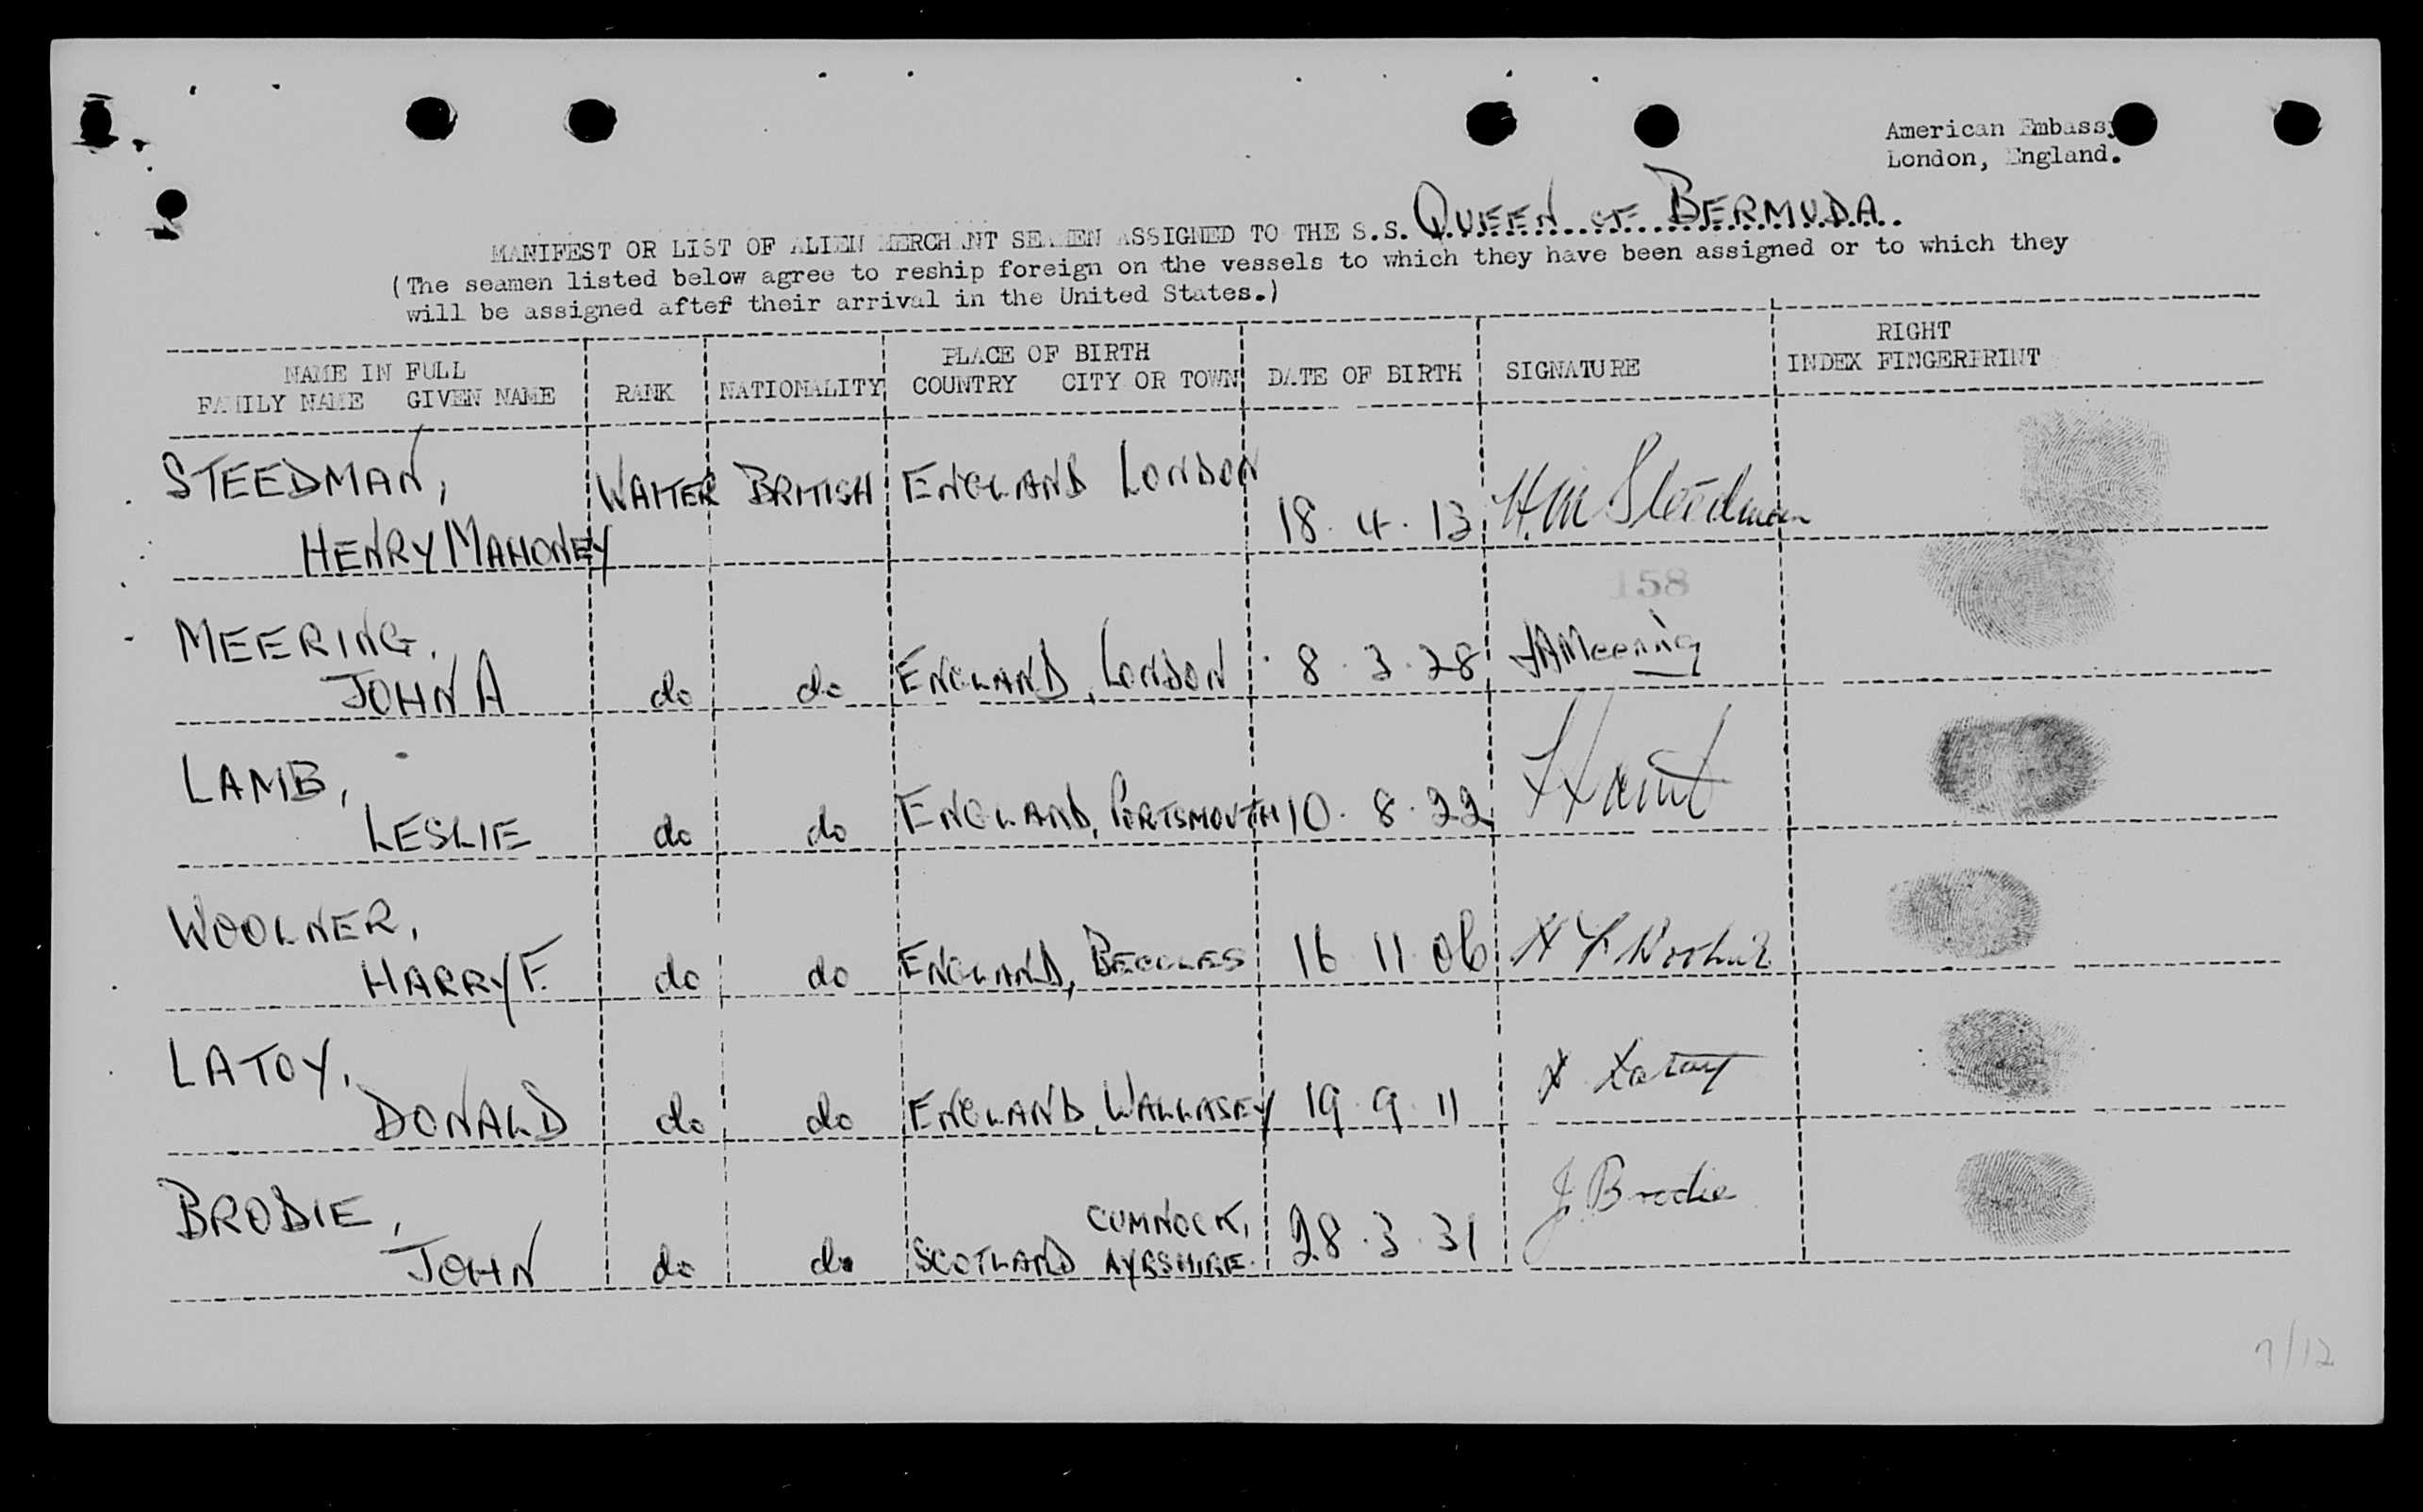 American Embassy
London, England.
MANIFEST OR LIST OF ALIEN MERCHANT SEAMEN ASSIGNED TO THE S.S. QUEEN OF BERMUDA
(The seamen listed below agree to reship foreign on the vessels to which they have been assigned or to which they
will be assigned after their arrival in the United States.)
NAME IN FULL
FAMILY NAME GIVEN NAME
RANK
NATIONALITY
PLACE OF BIRTH
COUNTRY CITY OR TOWN
DATE OF BIRTH
SIGNATURE
RIGHT
INDEX FINGERPRINT
STEEDMAN, WAITER BRITISH ENGLAND LONDON
HENRY MAHONEY 18. 4. 13 H.M Steedman
158
MEERING,
JOHN A do do ENGLAND, LONDON 8. 3. 28 JAMeering
LAMB,
LESLIE do do ENGLAND, PORTSMOUTH 10. 8. 22
WOOLNER,
HARRY F. do do ENGLAND, BECCLES 16 11 06 H F Woolner
LATOY,
DONALD do do ENGLAND, WALLASEY 19. 9. 11 Latoy
BRODIE, CUMNOCK, J. Brodie
JOHN do do SCOTLAND AYRSHIRE. 28. 3. 31
7/12